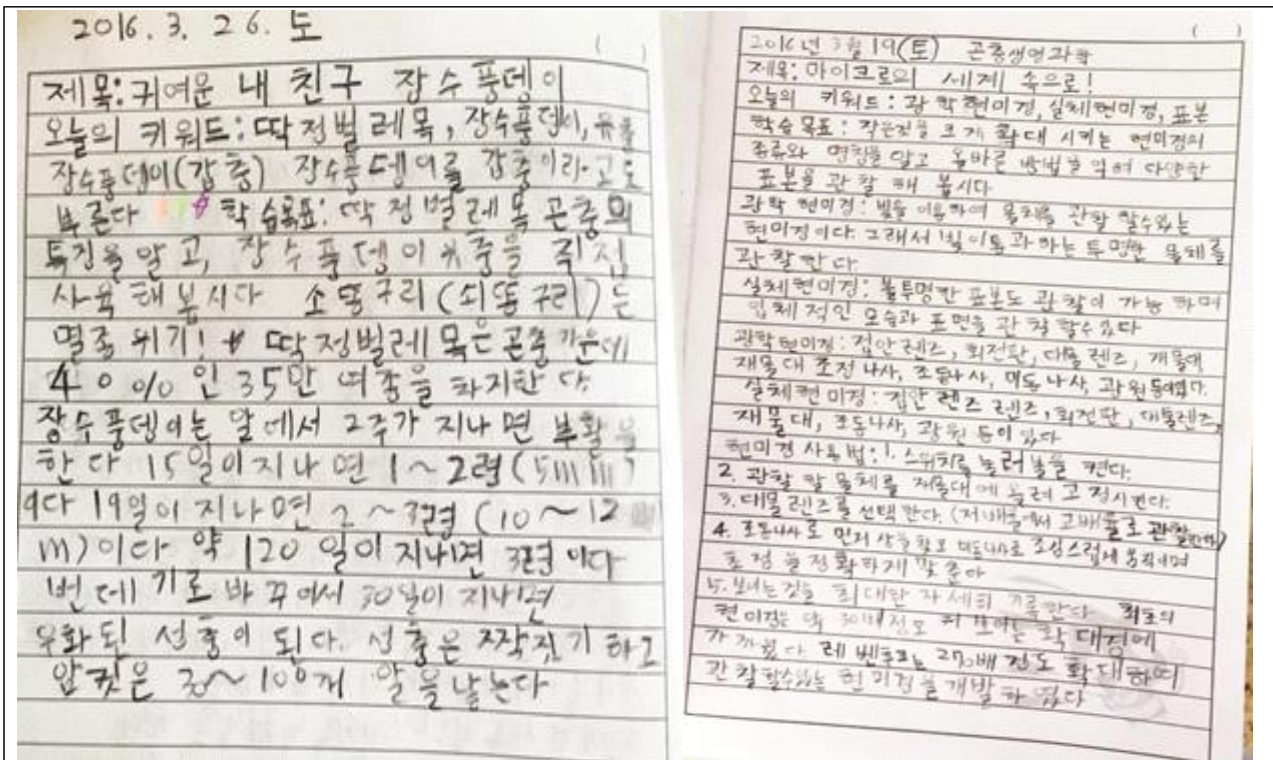 2016. 3. 26. 토
제목: 귀여운 내 친구 장수풍뎅이
오늘의 키워드: 딱정벌레목, 장수풍뎅이,
장수풍뎅이(갑충) 장수풍뎅이를 갑충이라고도
부른다 학습목표: 딱정벌레목 곤충의
특징을 알고, 장수풍뎅이 유충을 직접
사육해봅시다 소똥구리(쇠똥구리)는
멸종위기! 딱정벌레목은 곤충 가운데
40%인 35만 여종을 차지한다.
장수풍뎅이는 알에서 2주가 지나면 부활을
한다 15일이 지나면 1~2령(5mm)
이다 19일이 지나면 2~3령(10~12
m)이다 약 120일이 지나면 3령이다
번데기로 바꾸어서 30일이 지나면
우화된 성충이 된다. 성충은 짝짓기 하고
암컷은 30~100개 알을 낳는다
2016년 3월 19(토) 곤충생명과학
제목: 마이크로의 세계 속으로!
오늘의 키워드: 광학현미경, 실체현미경, 표본
학습목표: 작은것을 크게 확대 시키는 현미경의
종류와 명칭을 알고 올바른 방법을 익혀 다양한
표본을 관찰 해 봅시다
광학 현미경: 빛을 이용하여 물체를 관찰 할수있는
현미경이다. 그래서 빛이 통과하는 투명한 물체를
관찰한다.
실체현미경: 불투명한 표본도 관찰이 가능 하며
입체적인 모습과 표면을 관찰 할수있다
광학현미경: 접안렌즈, 회전판, 대물렌즈, 재물대
재물대 조정나사, 조동나사, 미동나사, 광원등이있다.
실체현미경: 접안렌즈 렌즈, 회전판, 대물렌즈,
재물대, 조동나사, 광원 등이 있다
현미경 사용법: 1. 스위치를 눌러 불을 켠다.
2. 관찰 할 물체를 재물대에 올려 고정시킨다.
3. 대물렌즈를 선택한다. (저배율에서 고배율로 관찰한다)
4. 조동나사로 먼저 상을 찾고 미동나사로 조심스럽게 움직이며
초점을 정확하게 맞춘다
5. 보이는 것을 최대한 자세히 기록한다 최초의
현미경은 약 30배정도 커 보이는 확대경에
가까웠다. 레벤후크는 270배 정도 확대하여
관찰할수있는 현미경을 개발하였다